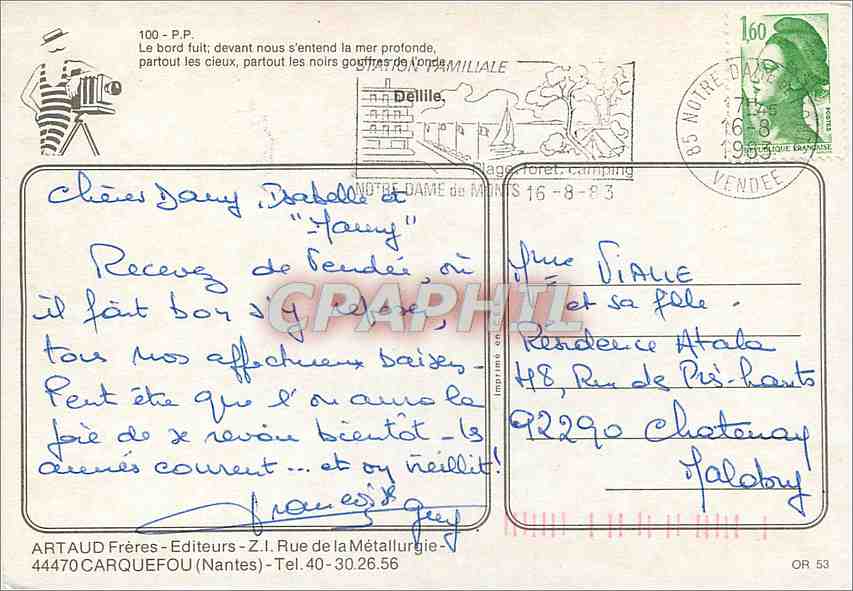 100 - P.P.
Le bord fuit; devant nous s'entend la mer profonde,
partout les cieux, partout les noirs gouffres de l'onde.
Delille.
STATION FAMILIALE
Plage, forêt, camping
NOTRE-DAME de MONTS 16-8-83
85 NOTRE DAME
17H45
16-8
1983
VENDEE
1,60
POSTES
REPUBLIQUE FRANÇAISE
Chères Dany, Isabelle et
"Mamy"
Recevez de Vendée, où
il fait bon s'y reposer,
tous nos affectueux baisers-
Peut être que l'on aura la
joie de se revoir bientôt - les
années courent... et on vieillit!
Guy
Imprimé en
Mme VIALLE
et sa fille.
Résidence Atala
48, Rue de Prés-hauts
92290 Chatenay
Malabry
CPAPHIL
ARTAUD Frères - Editeurs - Z.I. Rue de la Métallurgie -
44470 CARQUEFOU (Nantes) - Tel. 40 - 30.26.56
OR 53